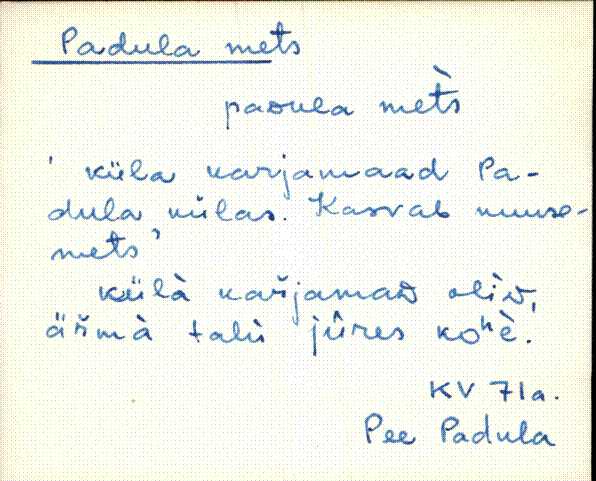 Padula mets
paᴅula met̀s
' küla karjamaad Pa-
dula külas. Kasvab kuuse-
mets '
külà kar̆jamaᴅ oliᴅ,
är̆mà talu jûres koʰè.
KV 71a.
Pee Padula